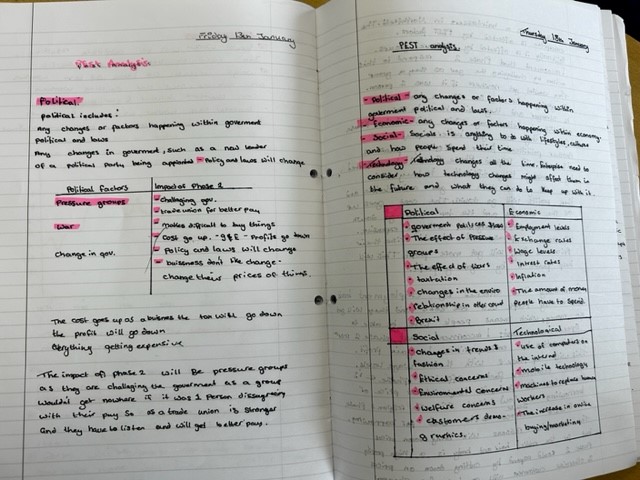 Friday 13th January
PEST Analysis
Political
political includes:
Any changes or factors happening within goverment
Political and laws
Any changes in goverment, such as a new leader
of a political party being appointed - Policy and laws will change
Political factors
Impact of Phase 2
Pressure groups
- Challenging gov.
- trade union for better pay
War
- Makes difficult to buy things
- Cost go up - Profits go down
Change in gov.
- Policy and laws will change
- buisness don't like change -
change their prices of things.
The cost goes up as a buisness the tax will go down
the profit will go down
Everything getting expensive
The impact of Phase 2 will Be pressure groups
as they are challaging the goverment as a group
Wouldn't get nowhere if it was 1 Person disagreeing
with their pay so as a trade union is stronger
And they have to listen and will get better pay.
Thursday January
PEST analysis
- Political - any changes or factors happening within
goverment political and laws.
- Economic - any changes or factors happening within economy
- Social - Socials is anything to do with lifestyles, culture
and how people spend their time
- Technology - technology changes all the time. need to
consider how technology changes might affect them in
the future and what they can do to keep up with it.
Political
government policies
The effect of Pressure
groups
The effect of wars
taxtation
changes in the enviro
relationship in other
Brexit
Economic
Employment levels
Exchange rates
Wage levels
intrest rates
Inflation
The amount of money
people have to spend.
Social
changes in trends &
fashion
Ethical concerns
Environmental concerns
Welfare concerns
customers demo-
graphics.
Technological
use of computers or
the internet
mobile technology
machines to replace human
workers
The increase in online
buying/marketing